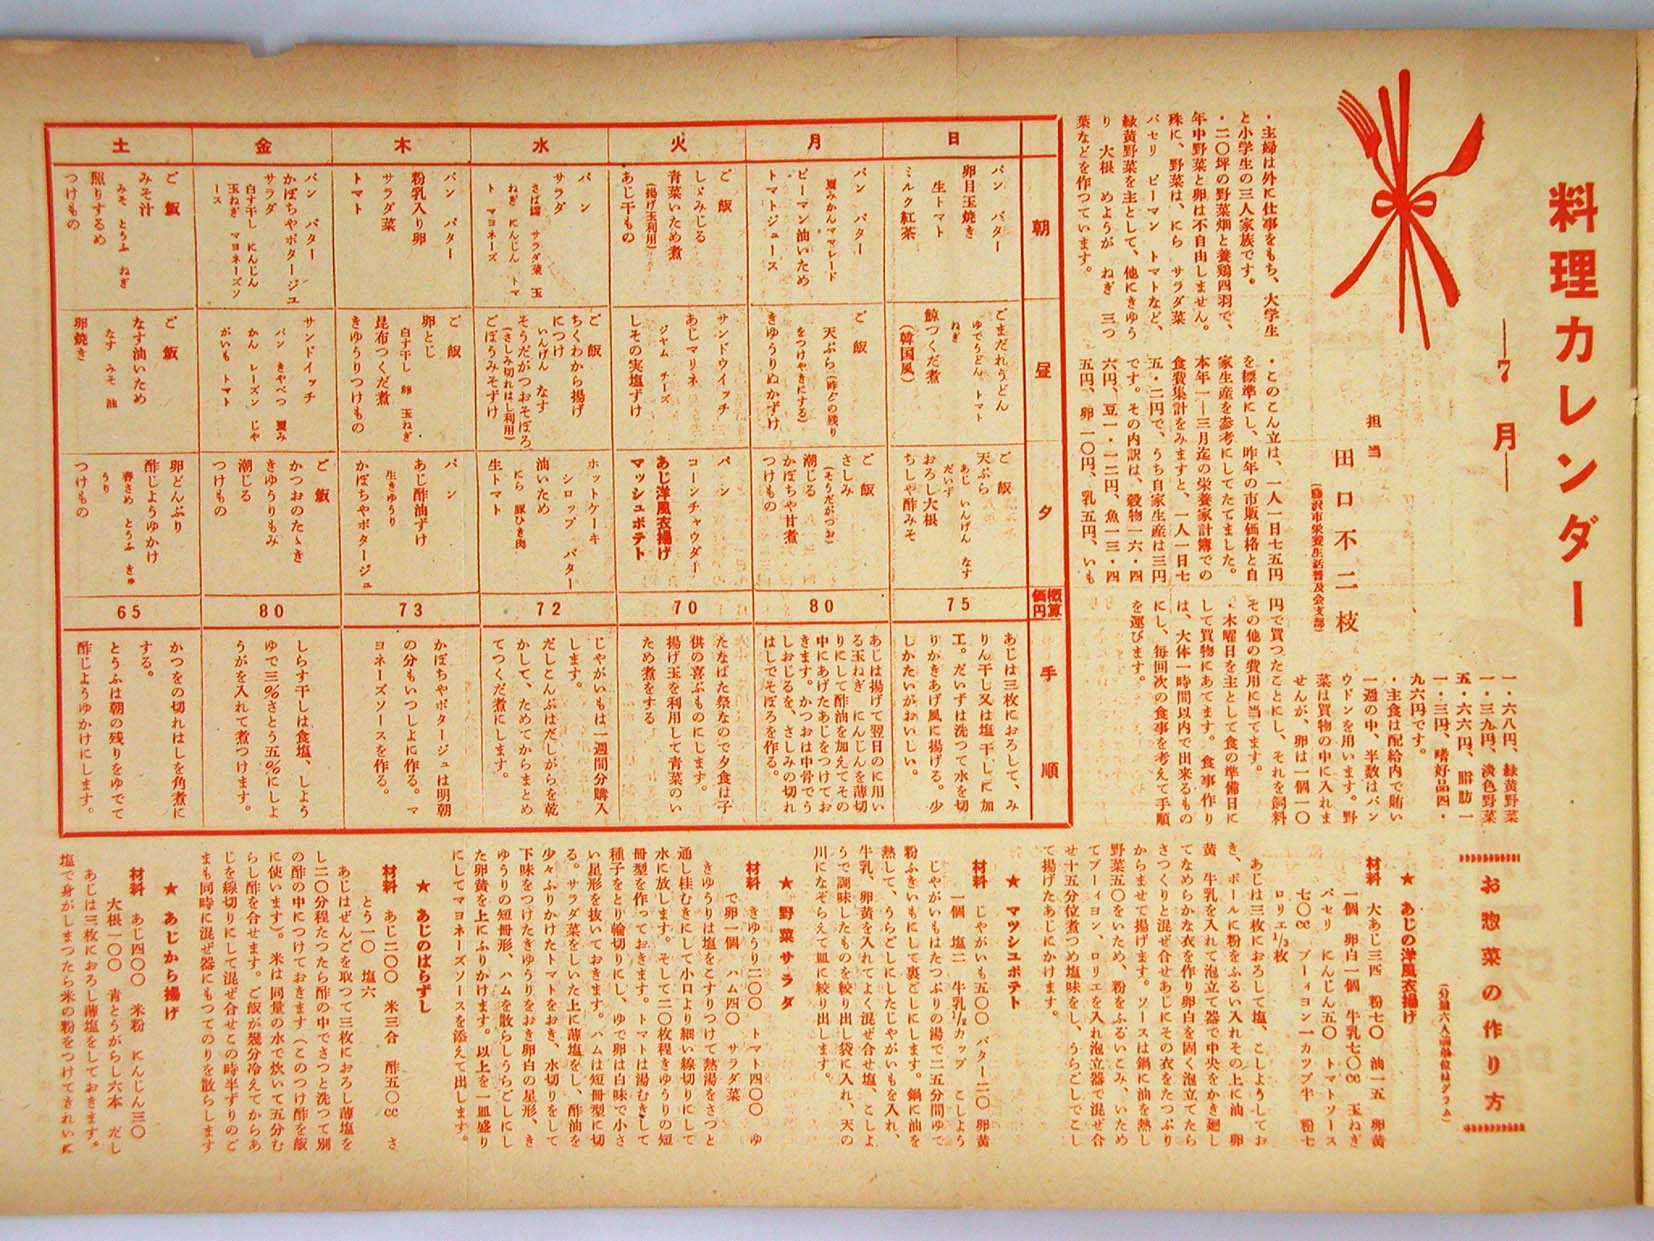 料理カレンダー
―7月―
担当
田口不二枝
(藤沢市栄養生活普及会支部)
・主婦は外に仕事をもち、大学生
と小学生の三人家族です。
・二〇坪の野菜畑と養鶏四羽で、
年中野菜と卵は不自由しません。
殊に、野菜は、にら サラダ菜
パセリ ピーマン トマトなど、
緑黄野菜を主として、他にきゆう
り 大根 めようが ねぎ 三つ
葉などを作つています。
・このこん立は、一人一日七五円
を標準にし、昨年の市販価格と自
家生産を参考にしてたてました。
本年一―三月迄の栄養家計簿での
食費集計をみますと、一人一日七
五・二円で、うち自家生産は三円
です。その内訳は、穀物一六・四
六円、豆一・一二円、魚一三・四
五円、卵一〇円、乳五円、いも
一・六八円、緑黄野菜
一・三九円、淡色野菜
五・六六円、脂肪一
一・三円、嗜好品四・
九六円です。
・主食は配給内で賄い
一週の中、半数はパン
ウドンを用います。野
菜は買物の中に入れま
せんが、卵は一個一〇
円で買つたことにし、それを飼料
その他の費用に当て ます。
・木曜日を主として食の準備日に
して買物にあてます。食事作り
は、大体一時間以内で出来るもの
にし、毎回次の食事を考えて手順
を運びます。
朝
昼
夕
概算価円
手順
日
パン バター
卵目玉焼き
生トマト
ミルク紅茶
ごまだれうどん
ゆでうどん トマト
ねぎ
鯨つくだ煮
(韓国風)
ご飯
天ぷら
あじ いんげん なす
だいず
おろし大根
ちしや酢みそ
75
あじは三枚におろして、み
りん干し又は塩干しに加
工。だいずは洗つて水を切
りかきあげ風に揚げる。少
しかたいがおいしい。
月
パン バター
夏みかんママレード
ピーマン油いため
トマトジュース
ご飯
天ぷら(昨夕の残り
をつけやきにする)
きゆうりぬかずけ
ご飯
さしみ
(そうだがつお)
潮じる
かぼちや甘煮
つけもの
80
あじは揚げて翌日のに用い
る玉ねぎ にんじんを薄切
りにして酢油を加えてその
中にあげたあじをつけてお
きます。かつおは中骨でう
しおじるを、さしみの切れ
はしでそぼろを作る。
火
ご飯
しゞみじる
青菜いため煮
(揚げ玉利用)
あじ干もの
サンドウイッチ
あじマリネ
ジヤム チーズ
しその実塩ずけ
パン
コーンチャウダー
あじ洋風衣揚げ
マッシュポテト
70
たなばた祭なので夕食は子
供の喜ぶものにします。
揚げ玉を利用して青菜のい
ため煮をする
水
パン
サラダ
さば罐 サラダ菜 玉
ねぎ にんじん トマ
ト マヨネーズ
ご飯
ちくわから揚げ
につけ
いんげん なす
そうだがつおそぼろ
(さしみ切れはし利用)
ごぼうみそずけ
ホットケーキ
シロップ バター
油いため
にら 豚ひき肉
生トマト
72
じやがいもは一週間分購入
します。
だしこんぶはだしがらを乾
かして、ためてからまとめ
てつくだ煮にします。
木
パン バター
粉乳入り卵
サラダ菜
トマト
ご飯
卵とじ
白す干し 卵 玉ねぎ
昆布つくだ煮
きゆうりつけもの
パン
あじ酢油ずけ
生きゆうり
かぼちやポタージュ
73
かぼちやポタージュは明朝
の分もいつしよに作る。マ
ヨネーズソースを作る。
金
パン バター
かぼちやポタージユ
サラダ
白す干し にんじん
玉ねぎ マヨネーズソ
ース
サンドイッチ
パン きやべつ 夏み
かん レーズン じや
がいも トマト
ご飯
かつおのたゝき
きゆうりもみ
潮じる
つけもの
80
しらす干しは食塩、しよう
ゆで三%さとう五%にしよ
うがを入れて煮つけます。
土
ご飯
みそ汁
みそ とうふ ねぎ
照りするめ
つけもの
ご飯
なす油いため
なす みそ 油
卵焼き
卵どんぶり
酢じようゆかけ
春さめ とうふ きゆ
うり
つけもの
65
かつをの切れはしを角煮に
する。
とうふは朝の残りをゆでて
酢じようゆかけにします。
お惣菜の作り方
★ あじの洋風衣揚げ
材料 大あじ三四 粉七〇 油一五 卵黄
一個 卵白一個 牛乳七〇cc 玉ねぎ
パセリ にんじん五〇 トマトソース
七〇cc ブーィヨン一カツプ半 粉七
ロリエ1/3枚
あじは三枚におろして塩、こしようしてお
き、ボールに粉をふるい入れその上に油 卵
黄 牛乳を入れて泡立て器で中央をかき廻し
てなめらかな衣を作り卵白を固く泡立てたら
さつくりと混ぜ合せあじにその衣をたつぷり
からませて揚げます。ソースは鍋に油を熱し
野菜五〇をいため、粉をふるいこみ、いため
てブーィヨン、ロリエを入れ泡立器で混ぜ合
せ十五分位煮つめ塩味をし、うらごしでこし
て揚げたあじにかけます。
★ マツシユポテト
材料 じやがいも五〇〇 バター二〇 卵黄
一個 塩二 牛乳1/2カップ こしよう
じやがいもはたつぷりの湯で二五分間ゆで
粉ふきいもにして裏ごしにします。鍋に油を
熱して、うらごしにしたじやがいもを入れ、
牛乳、卵黄を入れてよく混ぜ合せ塩、こしよ
うで調味したものを絞り出し袋に入れ、天の
川になぞらえて皿に絞り出します。
★ 野菜サラダ
材料 きゆうり二〇〇 トマト四〇〇 ゆ
で卵一個 ハム四〇 サラダ菜
きゆうりは塩をこすりつけて熱湯をさつと
通し桂むきにして小口より細い線切りにして
水に放します。そして二〇枚程きゆうりの短
冊型を作つておきます。トマトは湯むきして
種子をとり輪切りにし、ゆで卵は白味で小さ
い星形を抜いておきます。ハムは短冊型に切
る。サラダ菜をしいた上に薄塩をし、酢油を
少々ふりかけたトマトをおき、水切りをして
下味をつけたきゆうりをおき卵白の星形、き
ゆうりの短冊形、ハムを散らしうらごしにし
た卵黄を上にふりかけます。以上を一皿盛り
にしてマヨネーズソースを添えて出します。
★ あじのばらずし
材料 あじ二〇〇 米三合 酢五〇cc さ
とう一〇 塩六
あじはぜんごを取つて三枚におろし薄塩を
し二〇分程たつたら酢の中でさつと洗つて別
の酢の中につけておきます(このつけ酢を飯
に使います)。米は同量の水で炊いて五分む
らし酢を合せます。ご飯が幾分冷えてからあ
じを線切りにして混ぜ合せこの時半ずりのご
まも同時に混ぜ器にもつてのりを散らします
★ あじから揚げ
材料 あじ四〇〇 米粉 にんじん三〇
大根一〇〇 青とうがらし六本 だし
あじは三枚におろし薄塩をしておきます。
塩で身がしまつたら米の粉をつけてきれいに